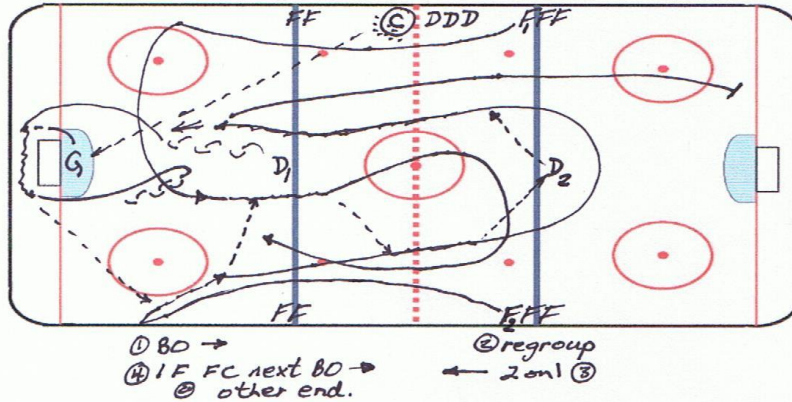 FF Ⓒ DDD F₁FF
G D₁ D₂
FF F₂FF
① BO → ② regroup
④ 1F FC next BO → ← 2 on 1 ③
@ other end.